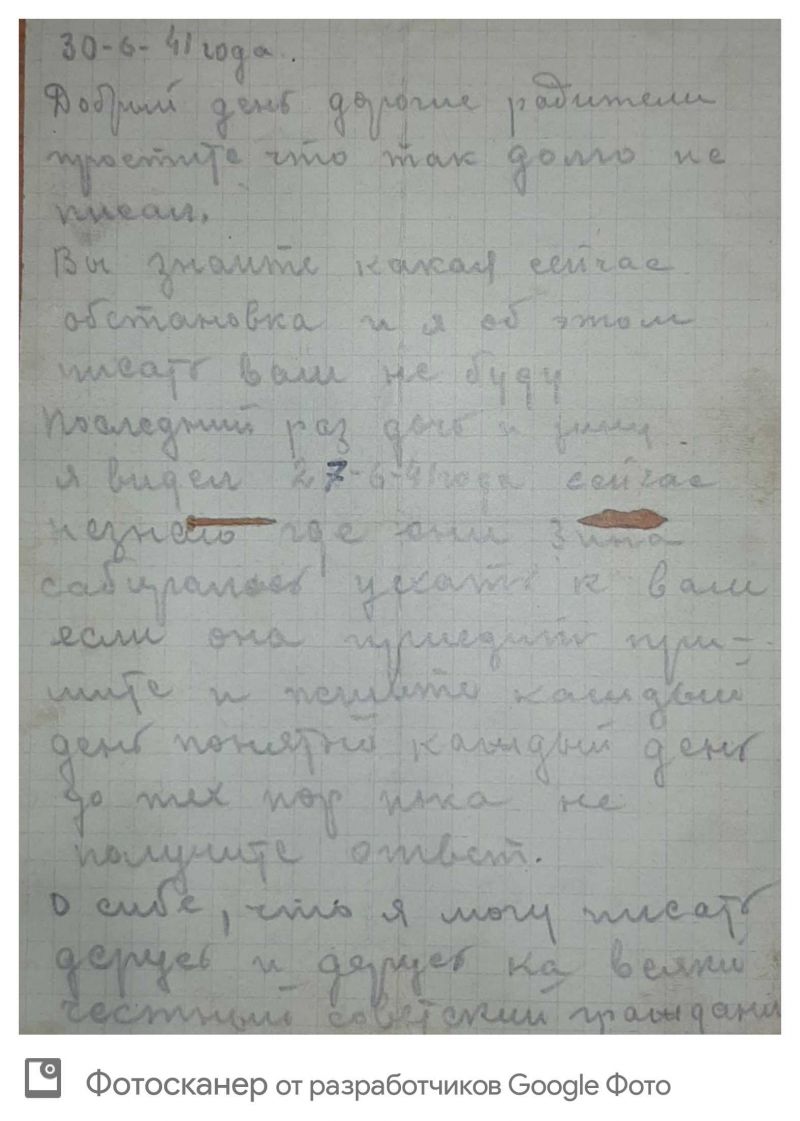 30-6-41 года.
Добрий день дорогие радители
простите что так долго не
писал.
Вы знаите какая сейчас
обстановка и я об этом
писать вам не буду
Последний раз дочь и зину
я видел 27-6-41 года сейчас
незнаю где они Зина
сабиралась уехать к вам
если она приедит при-
шите и пишите каждый
день понятно каждый день
до тех пор пока не
получите ответ.
О сибе, что я могу писать
дерусь и дерусь ка всяки
честный советский гражданин
Фотосканер от разработчиков Google Фото